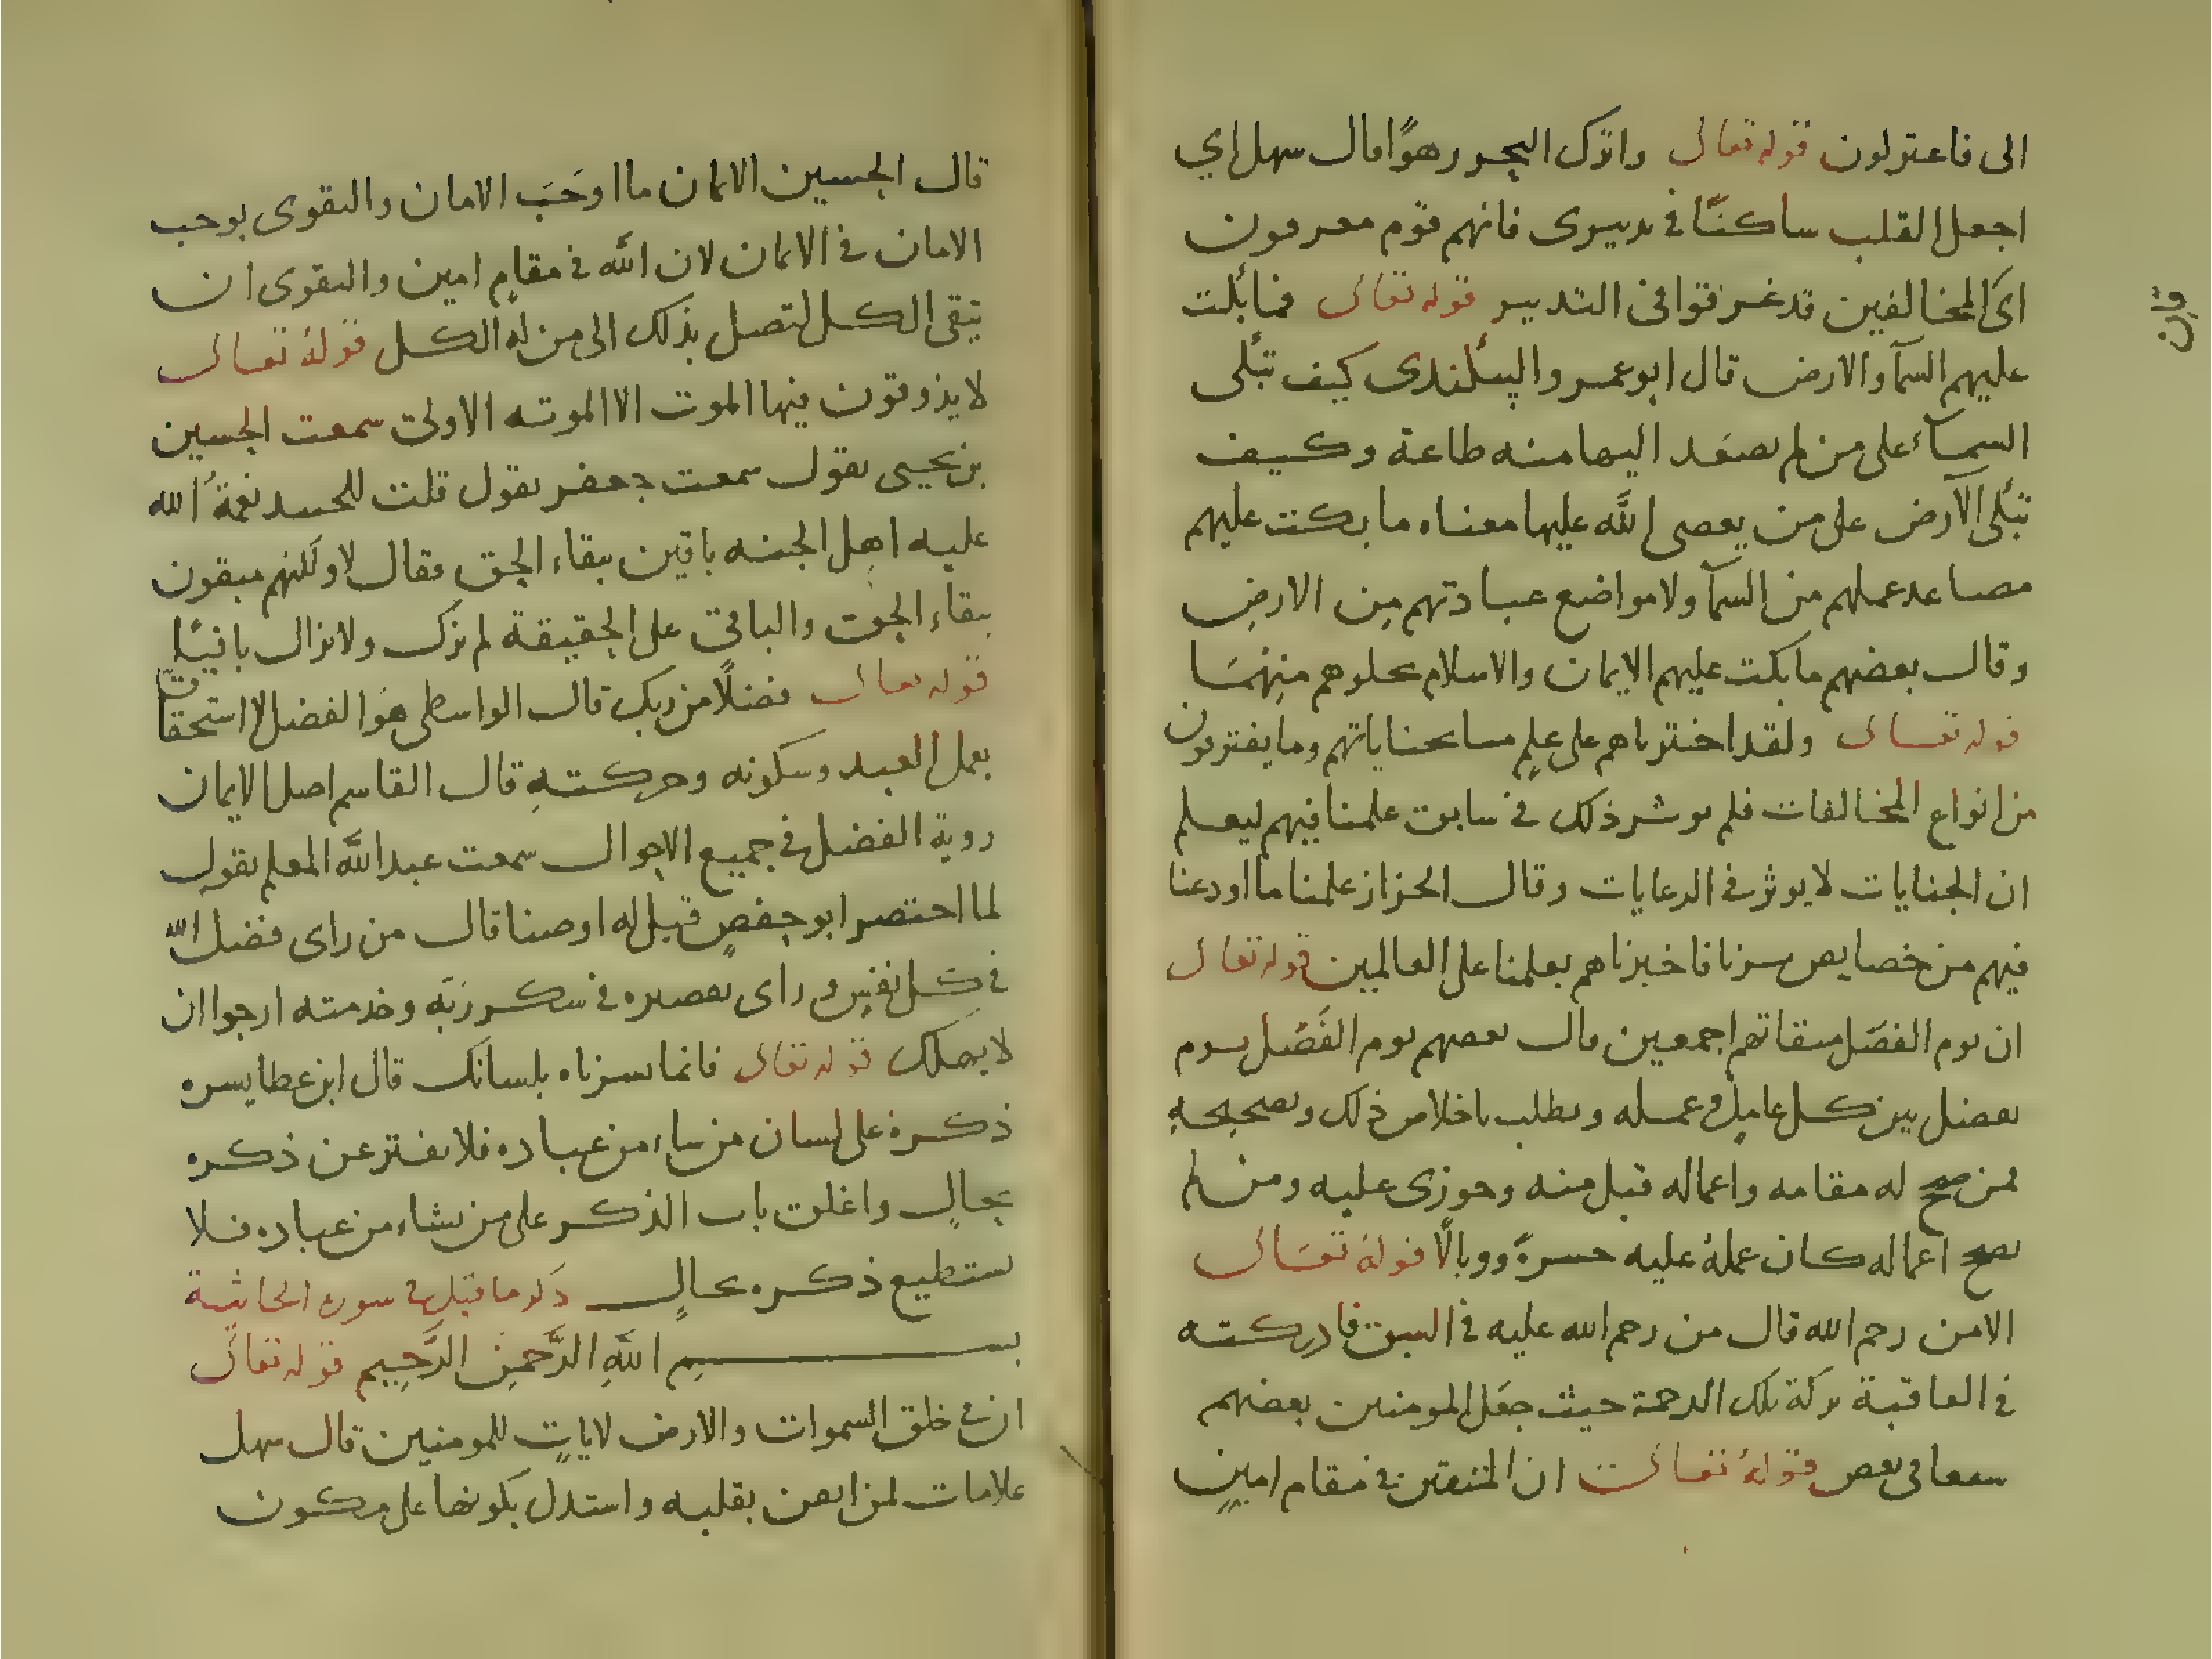 الى فاعتزلون قوله تعالى واترك البحر رهوًا قال سهل اي
اجعل القلب ساكنًا في تدبيرى فانهم قوم مغرقون
اى المخالفين قد غرقوا في التدبير قوله تعالى فما بكت
عليهم السمآ والارض قال ابو عمرو البيكندى كيف تبكى
السمآء على من لم يصعد اليها منه طاعة وكيف
تبكى الارض على من يعصى الله عليها معناه ما بكت عليهم
مصاعد عملهم من السمآ ولا مواضع عبادتهم من الارض
وقال بعضهم ما بكت عليهم الايمان والاسلام بخلوهم منهما
قوله تعالى ولقد اخترناهم على علم منا بجناياتهم وما يقترفون
من انواع المخالفات فلم يوثر ذلك في سابق علمنا فيهم ليعلم
ان الجنايات لا يوثر في الرعايات وقال الخراز علمنا ما اودعنا
فيهم من خصايص سرنا فاخترناهم بعلمنا على العالمين قوله تعالى
ان يوم الفصل ميقاتهم اجمعين قال بعضهم يوم الفصل يوم
يفصل بين كل عامل وعمله ويطلب باخلاص ذلك وتصحيحه
فمن صح له مقامه واعماله قبل منه وجوزى عليه ومن لم
يصح اعماله كان عمله عليه حسرة ووبالًا قوله تعالى
الا من رحم الله قال من رحم الله عليه في السبق فادركته
في العاقبة بركة تلك الرحمة حيث جعل المومنين بعضهم
شفعا في بعض قوله تعالى ان المتقين في مقام امين
قال الحسين الايمان ما اوجب الامان والتقوى يوجب
الامان في الايمان لان الله في مقام امين والتقوى ان
يتقى الكل لتصل بذلك الى من له الكل قوله تعالى
لا يذوقون فيها الموت الا الموته الاولى سمعت الحسين
بن يحيى يقول سمعت جعفر يقول قلت للجنيد نعمة الله
عليه اهل الجنه باقين ببقاء الحق فقال لا ولكنهم مبقون
ببقاء الحق والباقى على الحقيقة لم يزل ولا يزال باقيًا
قوله تعالى فضلًا من ربك قال الواسطى هو الفضل لا استحقاق
بعمل العبد وسكونه وحركته قال القاسم اصل الايمان
روية الفضل في جميع الاحوال سمعت عبد الله المعلم يقول
لما احتضر ابو حفص قيل له اوصنا قال من راى فضل الله
في كل نفس و راى تقصيره في شكر ربه وخدمته ارجوا ان
لا يهلك قوله تعالى فانما يسرناه بلسانك قال ابن عطا يسره
ذكره على لسان من شاء من عباده فلا يفتر عن ذكره
بحال واغلق باب الذكر على من يشاء من عباده فلا
يستطيع ذكره بحال ذكر ما قيل في سورة الجاثية
بسم الله الرحمن الرحيم قوله تعالى
ان في خلق السموات والارض لايات للمومنين قال سهل
علامات لمن ايقن بقلبه واستدل بكونها على مكون